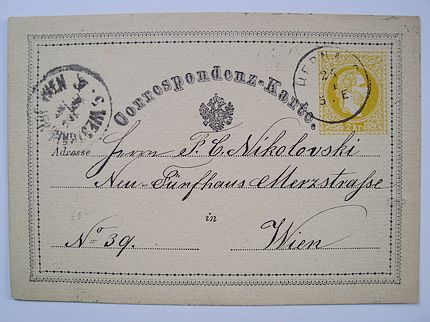 Correspondenz-Karte.
HERNALS
Adresse Herrn F. C. Nikolovski
Neu-Fünfhaus Merzstrasse
in
No 39. Wien
WIEN
2 Kr.